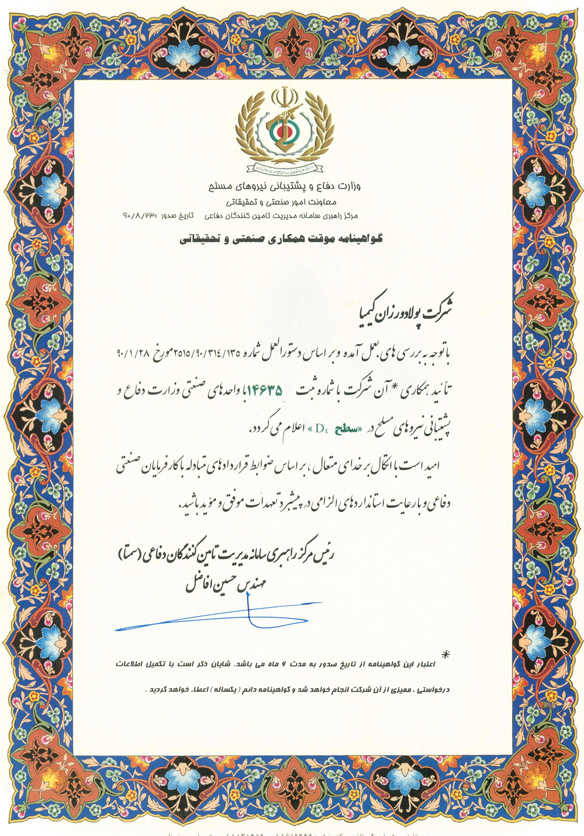 وزارت دفاع و پشتیبانی نیروهای مسلح
معاونت امور صنعتی و تحقیقاتی
مرکز راهبری سامانه مدیریت تامین کنندگان دفاعی تاریخ صدور :۹۰/۸/۲۳
گواهینامه موقت همکاری صنعتی و تحقیقاتی
شرکت پولادورزان کیمیا
با توجه به بررسی های بعمل آمده و بر اساس دستورالعمل شماره ۲۵۱۵/۹۰/۳۱۴/۱۳۵ مورخ ۹۰/۱/۲۸
تائید همکاری * آن شرکت با شماره ثبت ۱۴۶۳۵ با واحدهای صنعتی وزارت دفاع و
پشتیبانی نیروهای مسلح در «سطح D:» اعلام می گردد.
امید است با اتکال بر خدای متعال ، بر اساس ضوابط قراردادهای متبادله با کارفرمایان صنعتی
دفاعی و با رعایت استانداردهای الزامی در پیشبرد تعهدات موفق و مؤید باشید.
رئیس مرکز راهبری سامانه مدیریت تامین کنندگان دفاعی (سمتا)
مهندس حسین افاضل
* اعتبار این گواهینامه از تاریخ صدور به مدت ۶ ماه می باشد. شایان ذکر است با تکمیل اطلاعات
درخواستی ، ممیزی از آن شرکت انجام خواهد شد و گواهینامه دائم ( یکساله ) اعطاء خواهد گردید .